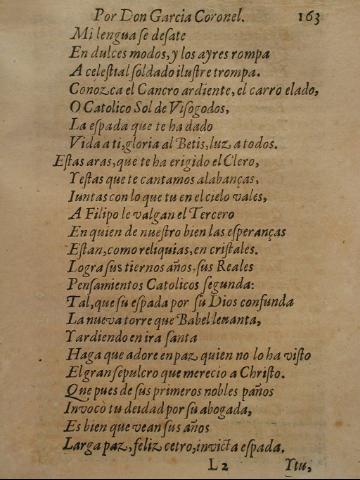 Por Don Garcia Coronel. 163
Mi lengua se desate
En dulces modos, y los ayres rompa
A celestial soldado ilustre trompa.
Conozca el Cancro ardiente, el carro elado,
O Catolico Sol de Visogodos,
La espada que te ha dado
Vida a ti, gloria al Betis, luz a todos.
Estas aras, que te ha erigido el Clero,
Y estas que te cantamos alabanças,
Iuntas con lo que tu en el cielo vales,
A Filipo le valgan el Tercero
En quien de nuestro bien las esperanças
Estan, como reliquias, en cristales.
Logra sus tiernos años, sus Reales
Pensamientos Catolicos segunda:
Tal, que su espada por su Dios confunda
La nueva torre que Babel leuanta,
Y ardiendo en ira santa
Haga que adore en paz quien no lo ha visto
El gran sepulcro que merecio a Christo.
Que pues de sus primeros nobles paños
Invocò tu deidad por su abogada,
Es bien que vean sus años
Larga paz, feliz cetro, invicta espada.
L2 Ytu,